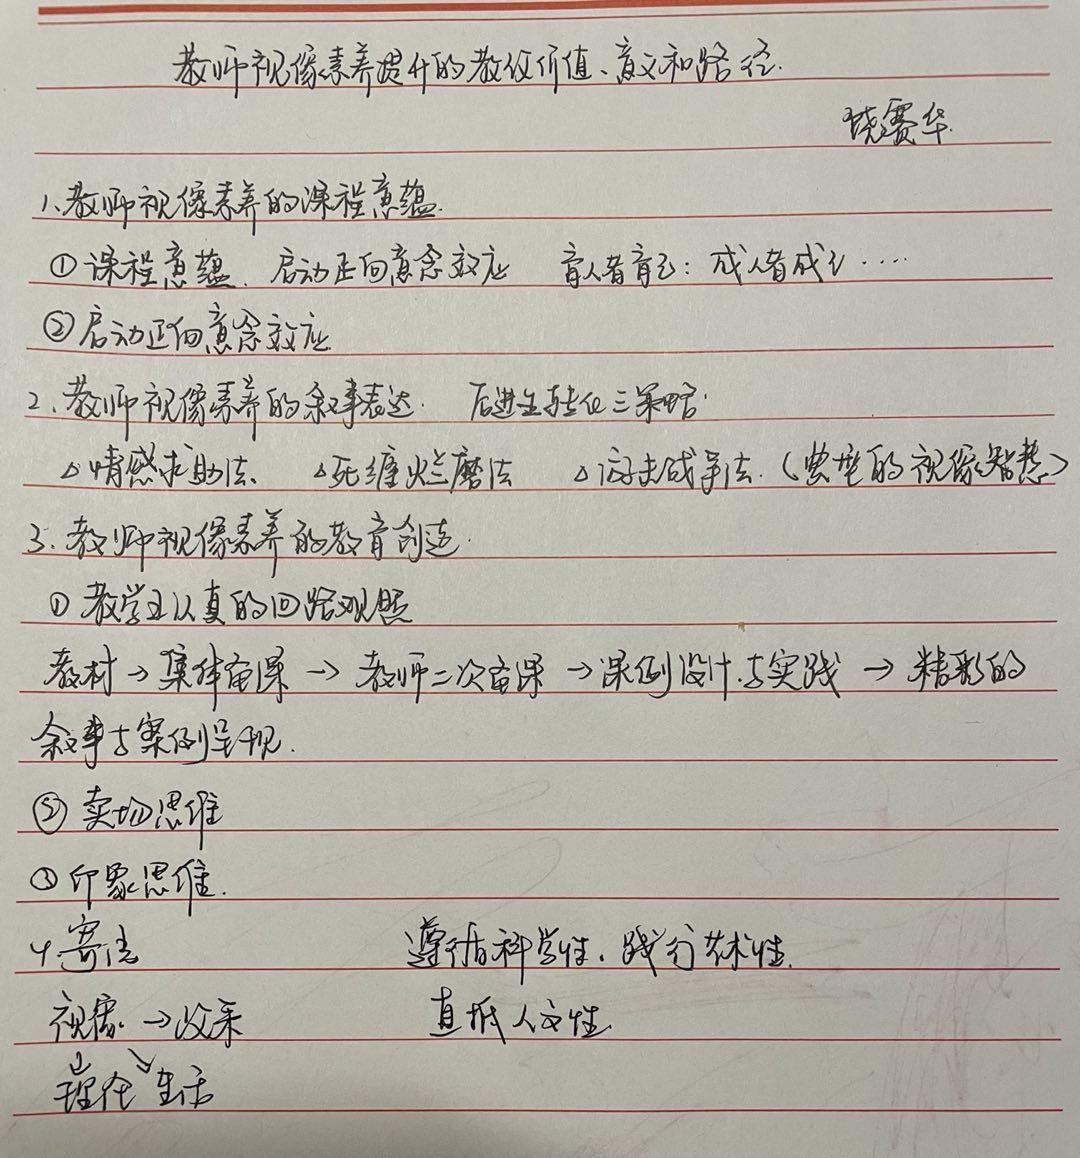 教师视像素养提升的教仪价值、意义和路径.
饶赛华.
1、教师视像素养的课程意蕴.
①课程意蕴. 启动正向意念效应 育人者育己: 成人者成己····
②启动正向意念效应.
2、教师视像素养的叙事表达. 后进生转化三策略.
△情感求助法. △死缠烂磨法 △法.(典型的视像智慧)
3、教师视像素养的教育创造.
①教学正从真的回路观照
教材→集体备课→教师二次备课→课例设计与实践→精彩的
叙事与案例呈现.
②卖场思维
③印象思维.
4.寄语 遵循科学性、践行艺术性.
视像.→效果 直抵人文性.
理论 生活